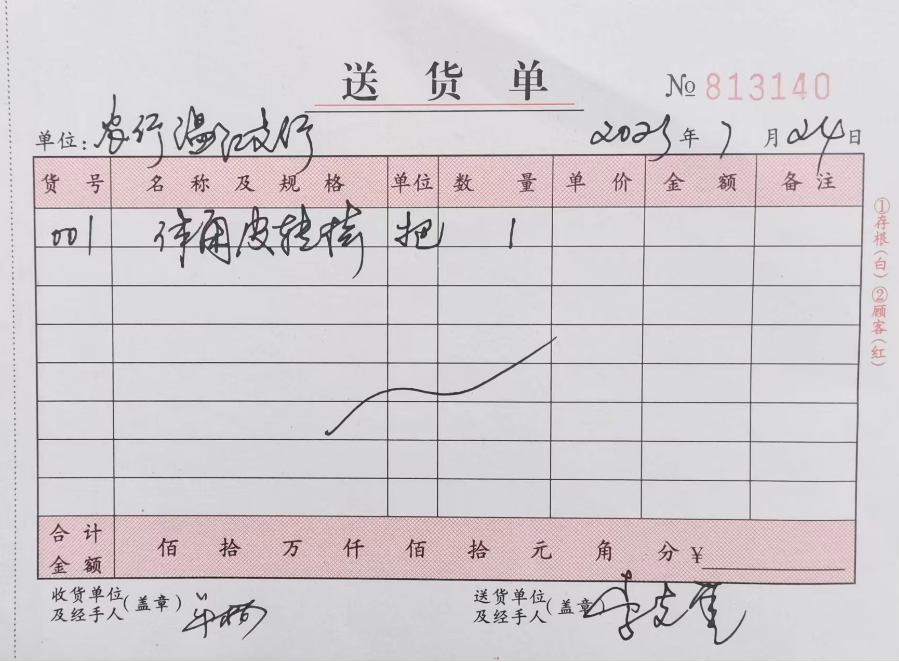 送货单
№ 813140
单位：农行温江支行 2023年7月24日
货号 名称及规格 单位 数量 单价 金额 备注
001 皮转椅 把 1
合计金额 佰 拾 万 仟 佰 拾 元 角 分 ¥
收货单位及经手人（盖章） 送货单位及经手人（盖章）
①存根（白）②顾客（红）